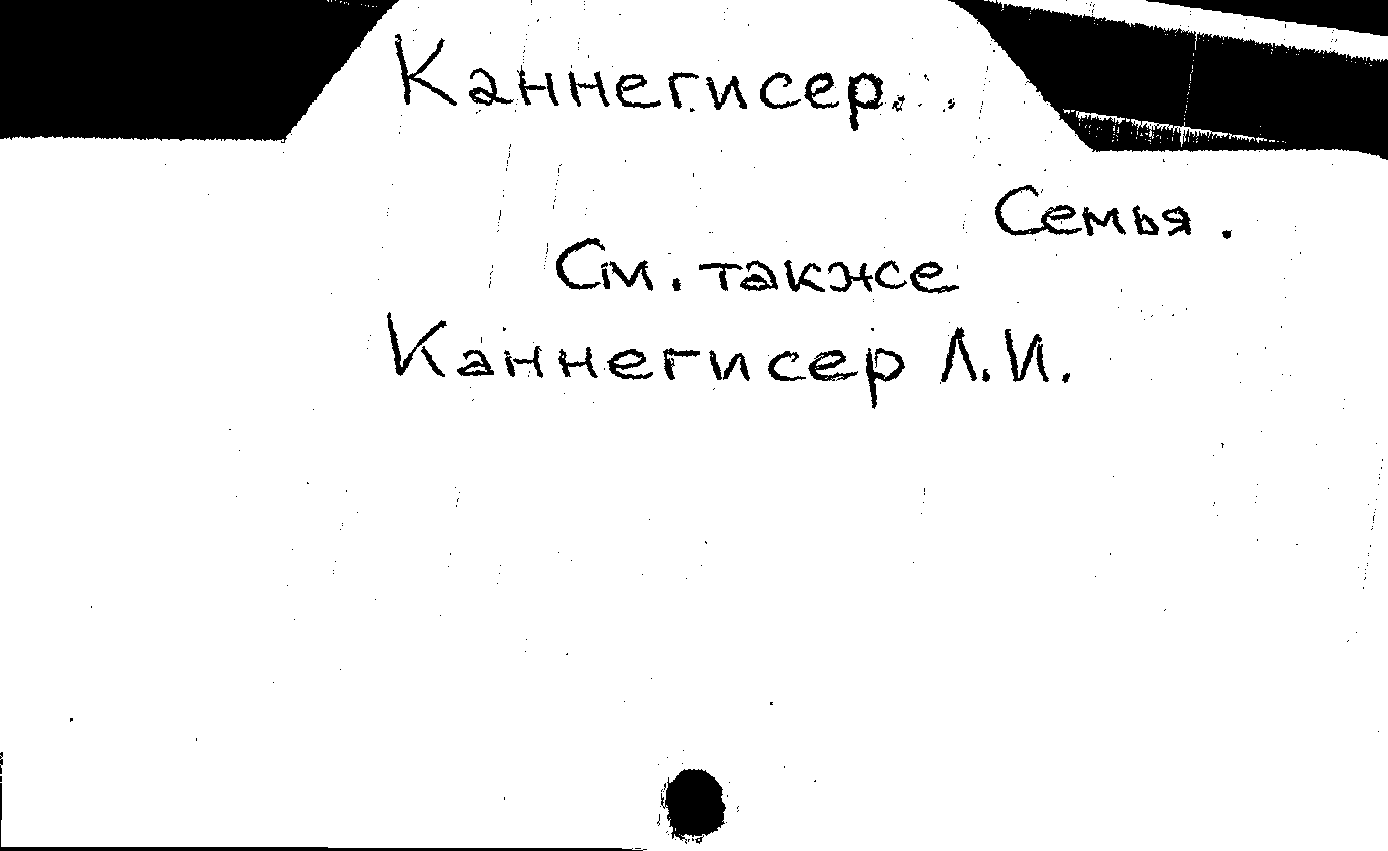 Каннегисер.
Семья.
См. также
Каннегисер Л.И.